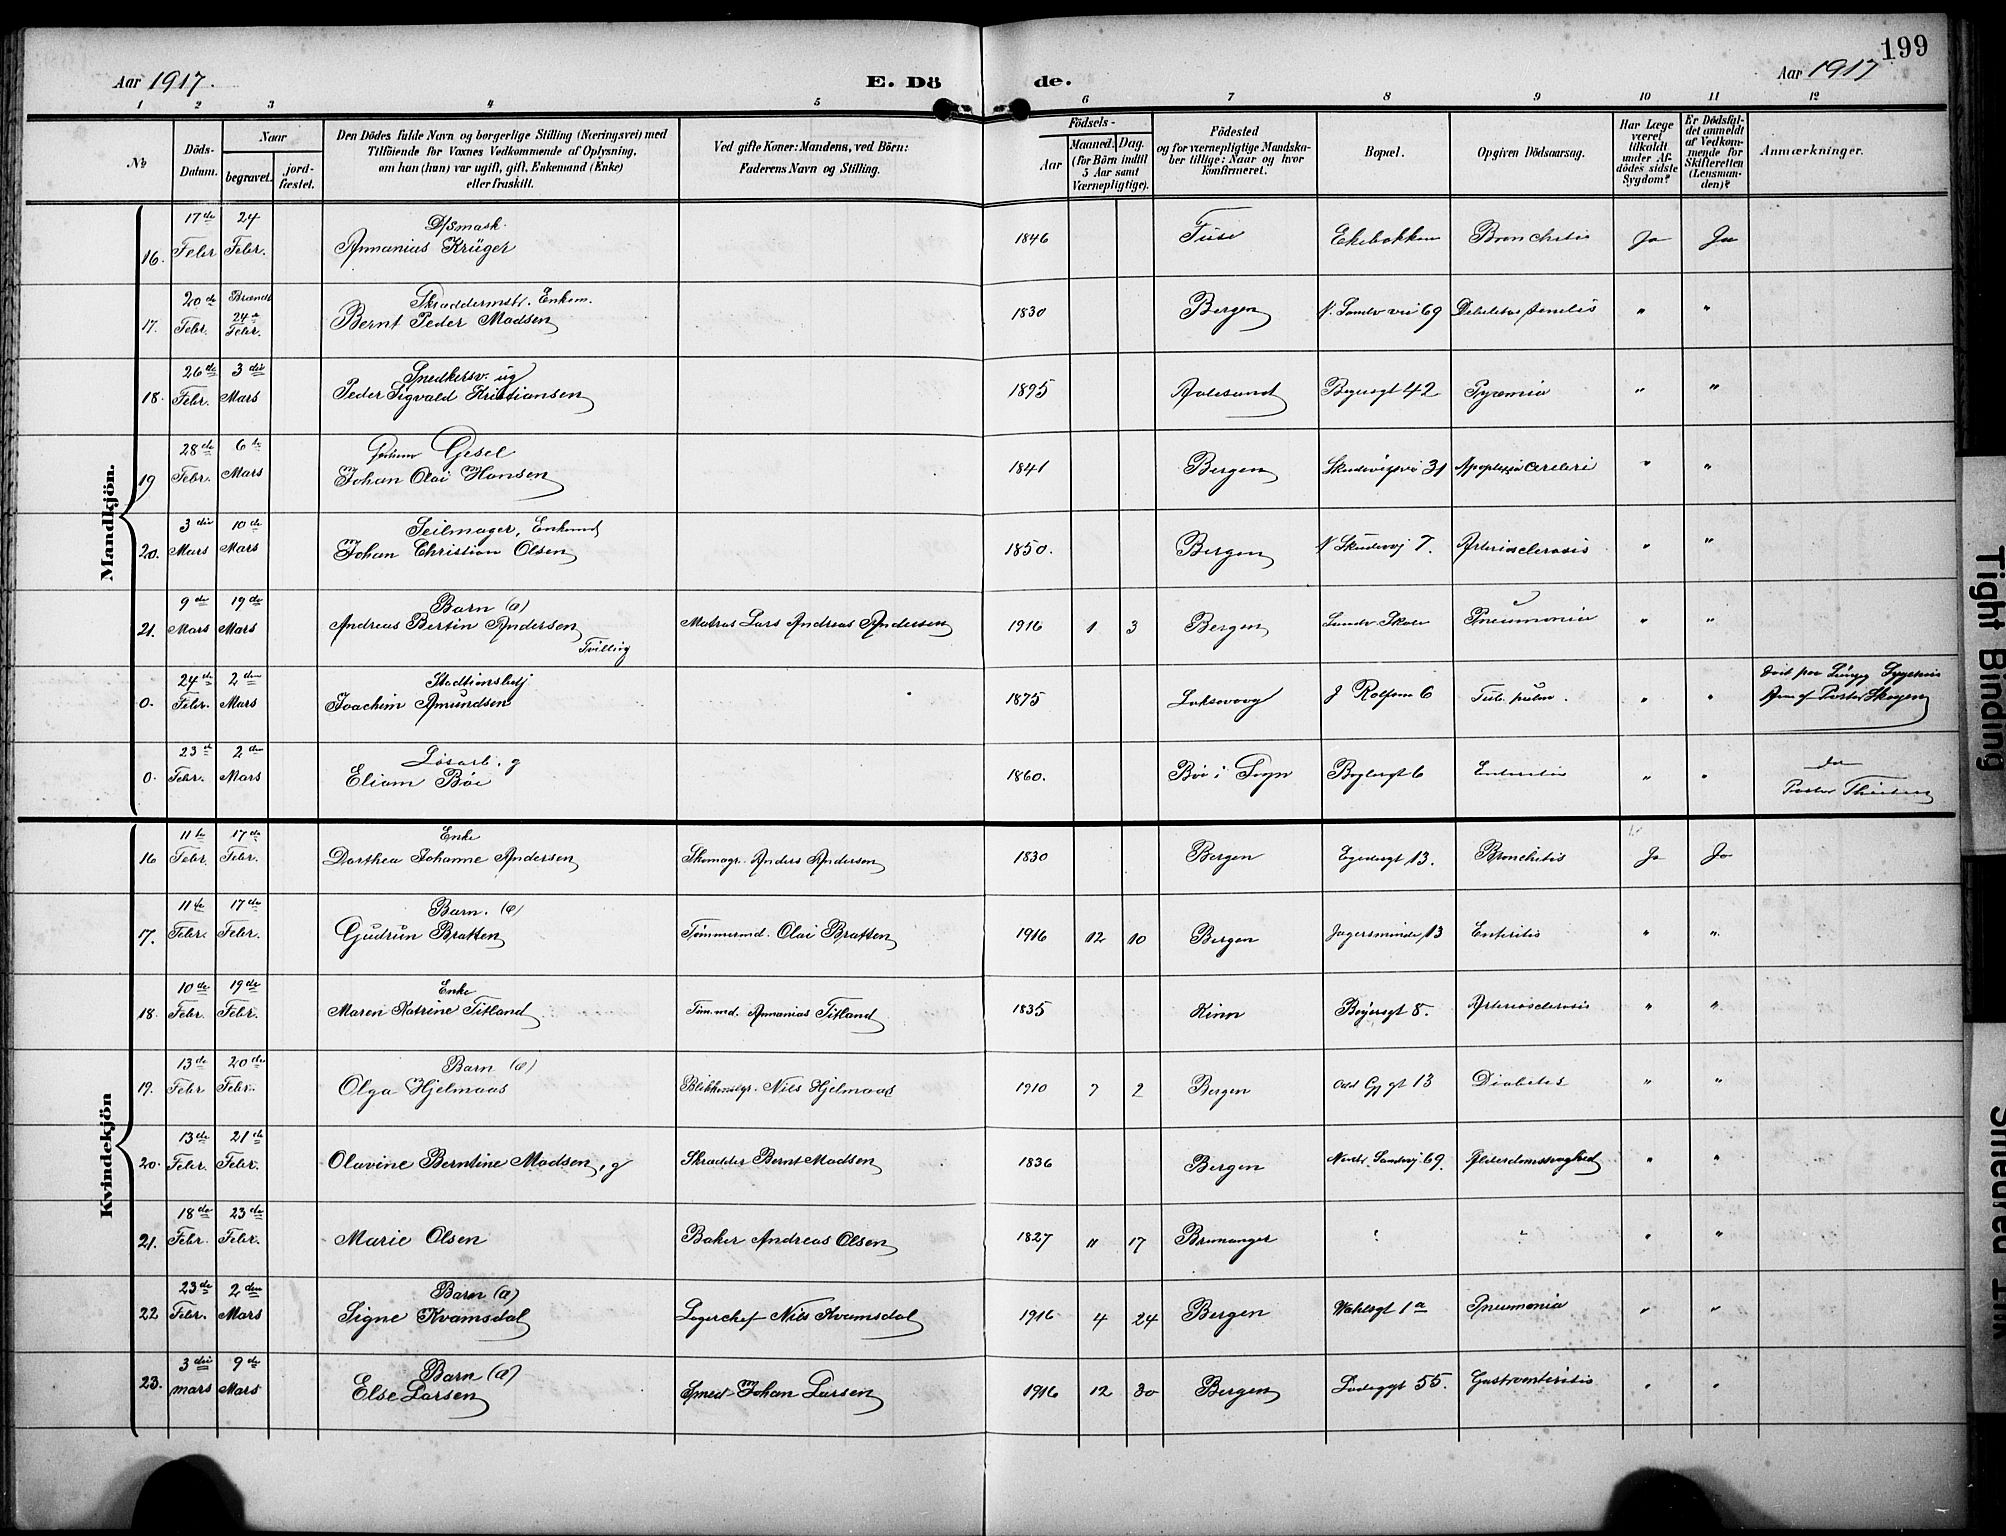 199
Aar 1917.
E. Dö
de.
Aar 1917
1 2 3 4 5 6 7 8 9 10 11 12
№
Döds-
Datum.
Naar
begravet.
jord-
fæstet.
Den Dödes fulde Navn og borgerlige Stilling (Næringsvei) med
Tilföiende for Voxnes Vedkommende af Oplysning,
om han (hun) var ugift, gift, Enkemand (Enke)
eller fraskilt.
Ved gifte Koner: Mandens, ved Börn:
Faderens Navn og Stilling.
Födsels-
Aar
Maaned.
Dag.
(for Börn indtil
5 Aar samt
Værnepligtige).
Födested
og for værnepligtige Mandska-
ber tillige: Naar og hvor
konfirmeret.
Bopæl.
Opgiven Dödsaarsag.
Har Læge
været
tilkaldt
under Af-
dödes sidste
Sygdom?
Er Dödsfal-
det anmeldt
af Vedkom-
mende for
Skifteretten
(Lensman-
den)?
Anmærkninger.
Mandkjön.
17de 24 D/Smask.
16. Febr Febr. Annanias Krüger 1846 Fuse Ekebakken Bronchitis Ja Ja
20de Brændt Skræddermstr. Enkem.
17. Febr. 24de Febr. Bernt Peder Madsen 1830 Bergen N. Sandv vei 69 Debilitas senilis " "
26de 3die Snedkersv. ug
18. Febr. Mars Peder Sigvald Kristiansen 1895 Aalesund Bøyersgt 42 Pyæmia " "
28de 6te Gesel
19 Febr. Mars Johan Olai Hansen 1841 Bergen Skudevigsvei 31 Apoplexia cerebri " "
3die 10de Seilmager, Enkemd
20. Mars Mars Johan Christian Olsen 1850. Bergen N Skudevvj 7. Arteriosclerosis " "
9de 19de Barn (a)
21. Mars Mars Andreas Bertin Andersen Matros Lars Andreas Andersen 1916 1 3 Bergen Sandv Skole Pneumonia " "
Tvilling
24de 2den
0. Febr. Mars Joachim Amundsen 1875 Laksevaag J Rolfsens 6 Tub. pulm. " " Pastor Skagen
23de 2den Løsarb. g
0. Febr. Mars Eliam Böe 1860. Böe i Sogn Bøylersgt 6 Enteritis " "
Pastor
Kvindekjön
11te 17de Enke
16 Febr. Febr. Dorthea Johanne Andersen Skomagr. Anders Andersen 1830 Bergen Egedesgt 13. Bronchitis Ja Ja
11te 17de Barn. (e)
17. Febr. Febr. Gudrun Bratten Tømmermd. Olai Bratten 1916 12 10 Bergen Jægersminde 13 Enteritis " "
10de 19de Enke
18. Febr. Febr. Maren Katrine Titland Tøm.md. Annanias Titland 1835 Kinn Bøyersgt 8. Arteriosclerosis " "
13de 20de Barn (e)
19. Febr Febr. Olga Hjelmaas Blikkenslgr. Nils Hjelmaas 1910 7 2 Bergen Odd Gj gt 13 Diabetes " "
13de 21de
20. Febr. Febr. Olavine Berntine Madsen, g Skrædder Bernt Madsen 1836 Bergen Nordr. Sandvj 69. Alderdomssvaghed " "
18de 23de
21. Febr. Febr. Marie Olsen Baker Andreas Olsen 1827 11 17 Bremanger " " " "
23de 2den Barn (a)
22 Febr. Mars Signe Kvamsdal Lagerchef Nils Kvamsdal 1916 4 24 Bergen Wahlsgt 1a Pneumonia " "
3die 9de Barn (a)
23. Mars Mars Else Larsen Smed Johan Larsen 1916 12 30 Bergen Ladeggt 55. Gastroenteritis " "
Tight Binding